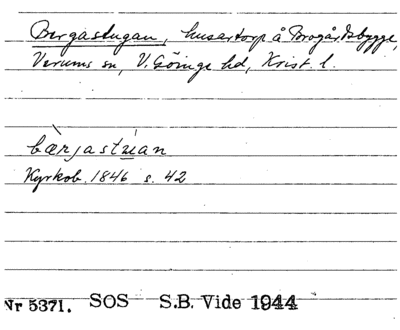 Bergastugan, husartorp å Brogårdsbygge,
Verums sn, V. Göinge hd, Krist. l.
bæ̀rjastuan
Kyrkob. 1846 s. 42
Nr 5371. SOS S.B. Vide 1944